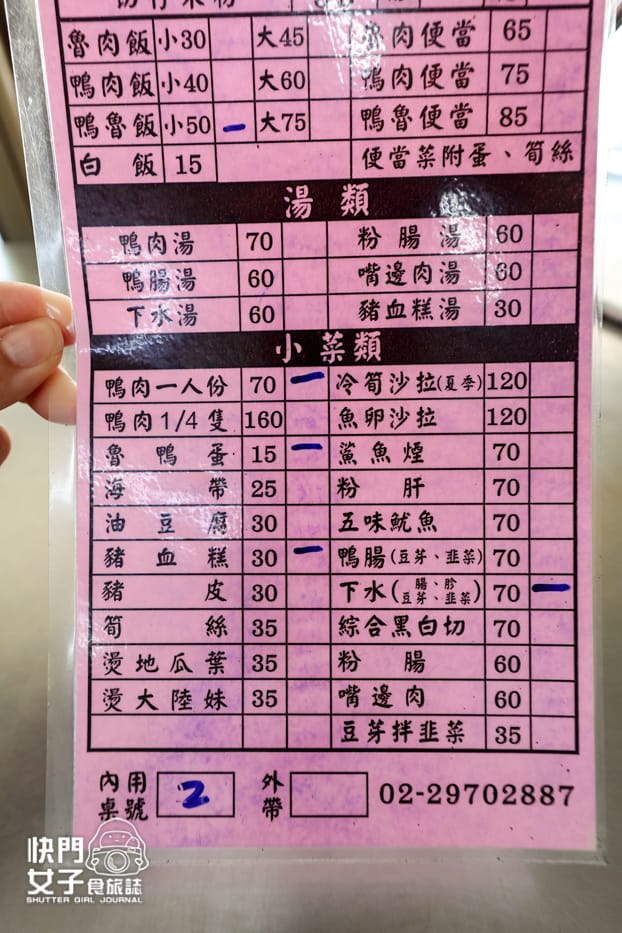 魯肉飯 小30 大45 魯肉便當 65
鴨肉飯 小40 大60 鴨肉便當 75
鴨魯飯 小50 大75 鴨魯便當 85
白飯 15 便當菜附蛋、筍絲
湯類
鴨肉湯 70 粉腸湯 60
鴨腸湯 60 嘴邊肉湯 60
下水湯 60 豬血糕湯 30
小菜類
鴨肉一人份 70 冷筍沙拉(夏季) 120
鴨肉1/4隻 160 魚卵沙拉 120
魯鴨蛋 15 鯊魚煙 70
海帶 25 粉肝 70
油豆腐 30 五味魷魚 70
豬血糕 30 鴨腸(豆芽、韭菜) 70
豬皮 30 下水(腸、胗豆芽、韭菜) 70
筍絲 35 綜合黑白切 70
燙地瓜葉 35 粉腸 60
燙大陸妹 35 嘴邊肉 60
豆芽拌韭菜 35
內用桌號 2 外帶 02-29702887
快門女子食旅誌
SHUTTER GIRL JOURNAL